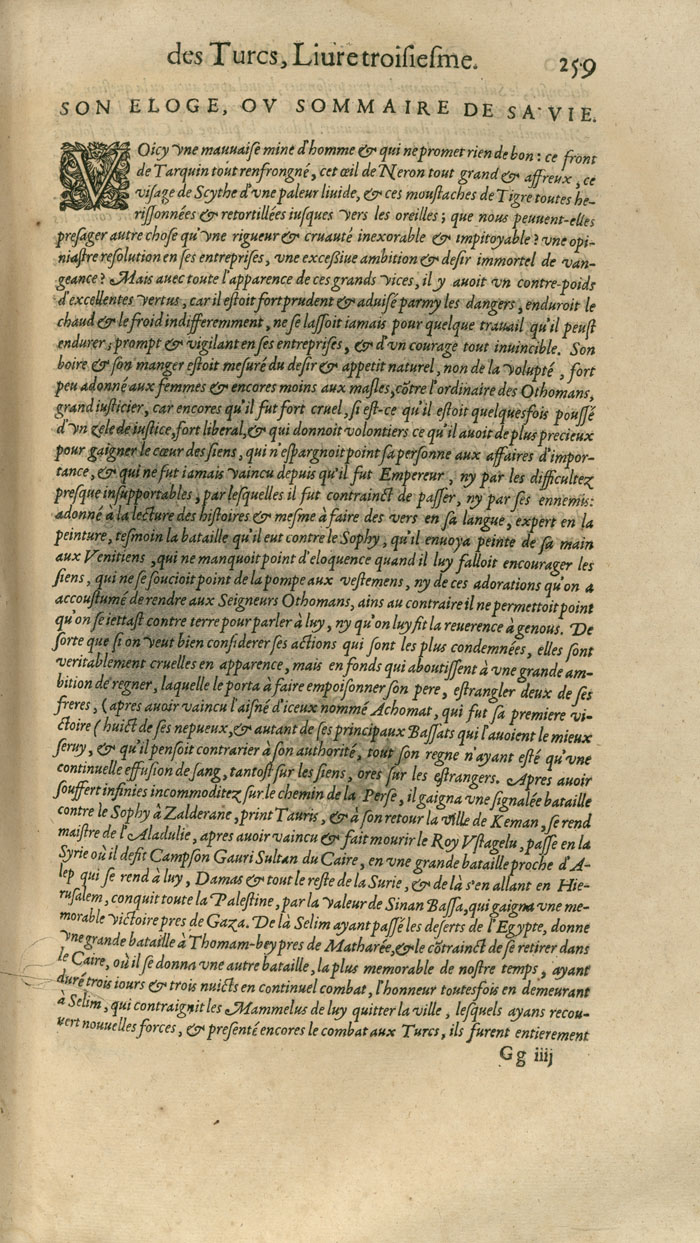 des Turcs, Liure troisiesme. 259
SON ELOGE, OV SOMMAIRE DE SA VIE.
VOicy vne mauuaise mine d'homme & qui ne promet rien de bon : ce front
de Tarquin tout renfrongné, cet œil de Neron tout grand & affreux, ce
visage de Scythe d'vne paleur liuide, & ces moustaches de Tigre toutes he-
rissonnées & retortillées iusques vers les oreilles ; que nous peuuent-elles
presager autre chose qu'vne rigueur & cruauté inexorable & impitoyable ? vne opi-
niastre resolution en ses entreprises, vne excessiue ambition & desir immortel de van-
geance ? Mais auec toute l'apparence de ces grands vices, il y auoit vn contre-poids
d'excellentes vertus, car il estoit fort prudent & aduisé parmy les dangers, enduroit le
chaud & le froid indifferemment, ne se lassoit iamais pour quelque trauail qu'il peust
endurer, prompt & vigilant en ses entreprises, & d'vn courage tout inuincible. Son
boire & son manger estoit mesuré du desir & appetit naturel, non de la volupté, fort
peu adonné aux femmes & encores moins aux masles, cōtre l'ordinaire des Othomans,
grand iusticier, car encores qu'il fut fort cruel, si est-ce qu'il estoit quelquesfois poussé
d'vn zele de iustice, fort liberal, & qui donnoit volontiers ce qu'il auoit de plus precieux
pour gaigner le cœur des siens, qui n'espargnoit point sa personne aux affaires d'impor-
tance, & qui ne fut iamais vaincu depuis qu'il fut Empereur, ny par les difficultez
presque insupportables, par lesquelles il fut contrainct de passer, ny par ses ennemis:
adonné à la lecture des histoires & mesme à faire des vers en sa langue, expert en la
peinture, tesmoin la bataille qu'il eut contre le Sophy, qu'il enuoya peinte de sa main
aux Venitiens, qui ne manquoit point d'eloquence quand il luy falloit encourager les
siens, qui ne se soucioit point de la pompe aux vestemens, ny de ces adorations qu'on a
accoustumé de rendre aux Seigneurs Othomans, ains au contraire il ne permettoit point
qu'on se iettast contre terre pour parler à luy, ny qu'on luy fit la reuerence à genous. De
sorte que si on veut bien considerer ses actions qui sont les plus condemnées, elles sont
veritablement cruelles en apparence, mais en fonds qui aboutissent à vne grande am-
bition de regner, laquelle le porta à faire empoisonner son pere, estrangler deux de ses
freres, (apres auoir vaincu l'aisné d'iceux nommé Achomat, qui fut sa premiere vi-
ctoire ( huict de ses nepueux, & autant de ses principaux Bassats qui l'auoient le mieux
seruy, & qu'il pensoit contrarier à son authorité, tout son regne n'ayant esté qu'vne
continuelle effusion de sang, tantost sur les siens, ores sur les estrangers. Apres auoir
souffert infinies incommoditez sur le chemin de la Perse, il gaigna vne signalée bataille
contre le Sophy à Zalderane, print Tauris, & à son retour la ville de Keman, se rend
maistre de l'Aladulie, apres auoir vaincu & fait mourir le Roy Vstagelu, passe en la
Syrie où il defit Campson Gauri Sultan du Caire, en vne grande bataille proche d'A-
lep qui se rend à luy, Damas & tout le reste de la Surie, & de là s'en allant en Hie-
rusalem, conquit toute la Palestine, par la valeur de Sinan Bassa, qui gaigna vne me-
morable victoire pres de Gaza. De là Selim ayant passé les deserts de l'Egypte, donne
vne grande bataille à Thomam-bey pres de Matharée, & le cōtrainct de se retirer dans
le Caire, où il se donna vne autre bataille, la plus memorable de nostre temps, ayant
duré trois iours & trois nuicts en continuel combat, l'honneur toutesfois en demeurant
à Selim, qui contraignit les Mammelus de luy quitter la ville, lesquels ayans recou-
vert nouuelles forces, & presenté encores le combat aux Turcs, ils furent entierement
Gg iiij